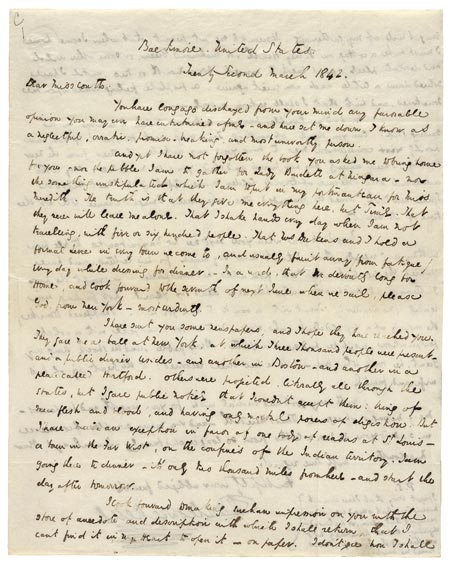 Baltimore. United States.
Twenty Second March 1842.
Dear Miss Coutts.
You have long ago discharged from your mind any favorable
opinion you may ever have entertained of me - and have set me down, I know, as
a neglectful, erratic, promise-breaking, and most unworthy person.
And yet I have not forgotten the book you asked me to bring home
for you - nor the pebble I am to gather for Lady Burdett at Niagara - nor
the something unstipulated which I am to put in my portmanteau for Miss
Meredith. The truth is that they give me everything here, but Time. That
they never will leave me alone. That I shake hands every day when I am not
travelling, with five or six hundred people. That Mrs. Dickens and I hold a
formal levee in every town we come to, and usually faint away from fatigue
every day while dressing for dinner. - In a word, that we devoutly long for
Home, and look forward to the seventh of next June when we sail, please
God, from New York - most ardently.
I have sent you some newspapers, and I hope they have reached you.
They gave me a ball at New York, at which Three Thousand people were present -
and a public dinner besides - and another in Boston - and another in a
place called Hartford. Others were projected, literally all through the
States, but I gave public notice that I couldn't accept them: being of
mere flesh and blood, and having only mortal powers of digestion. But
I have made an exception in favor of one body of readers at St. Louis -
a town in the Far West, on the confines of the Indian territory. I am
going there to dinner - it's only two thousand miles from here - and start the
day after tomorrow.
I look forward to making such an impression on you with the
store of anecdote and description with which I shall return, that I
can't find it in my heart to open it - on paper. I don't see how I shall